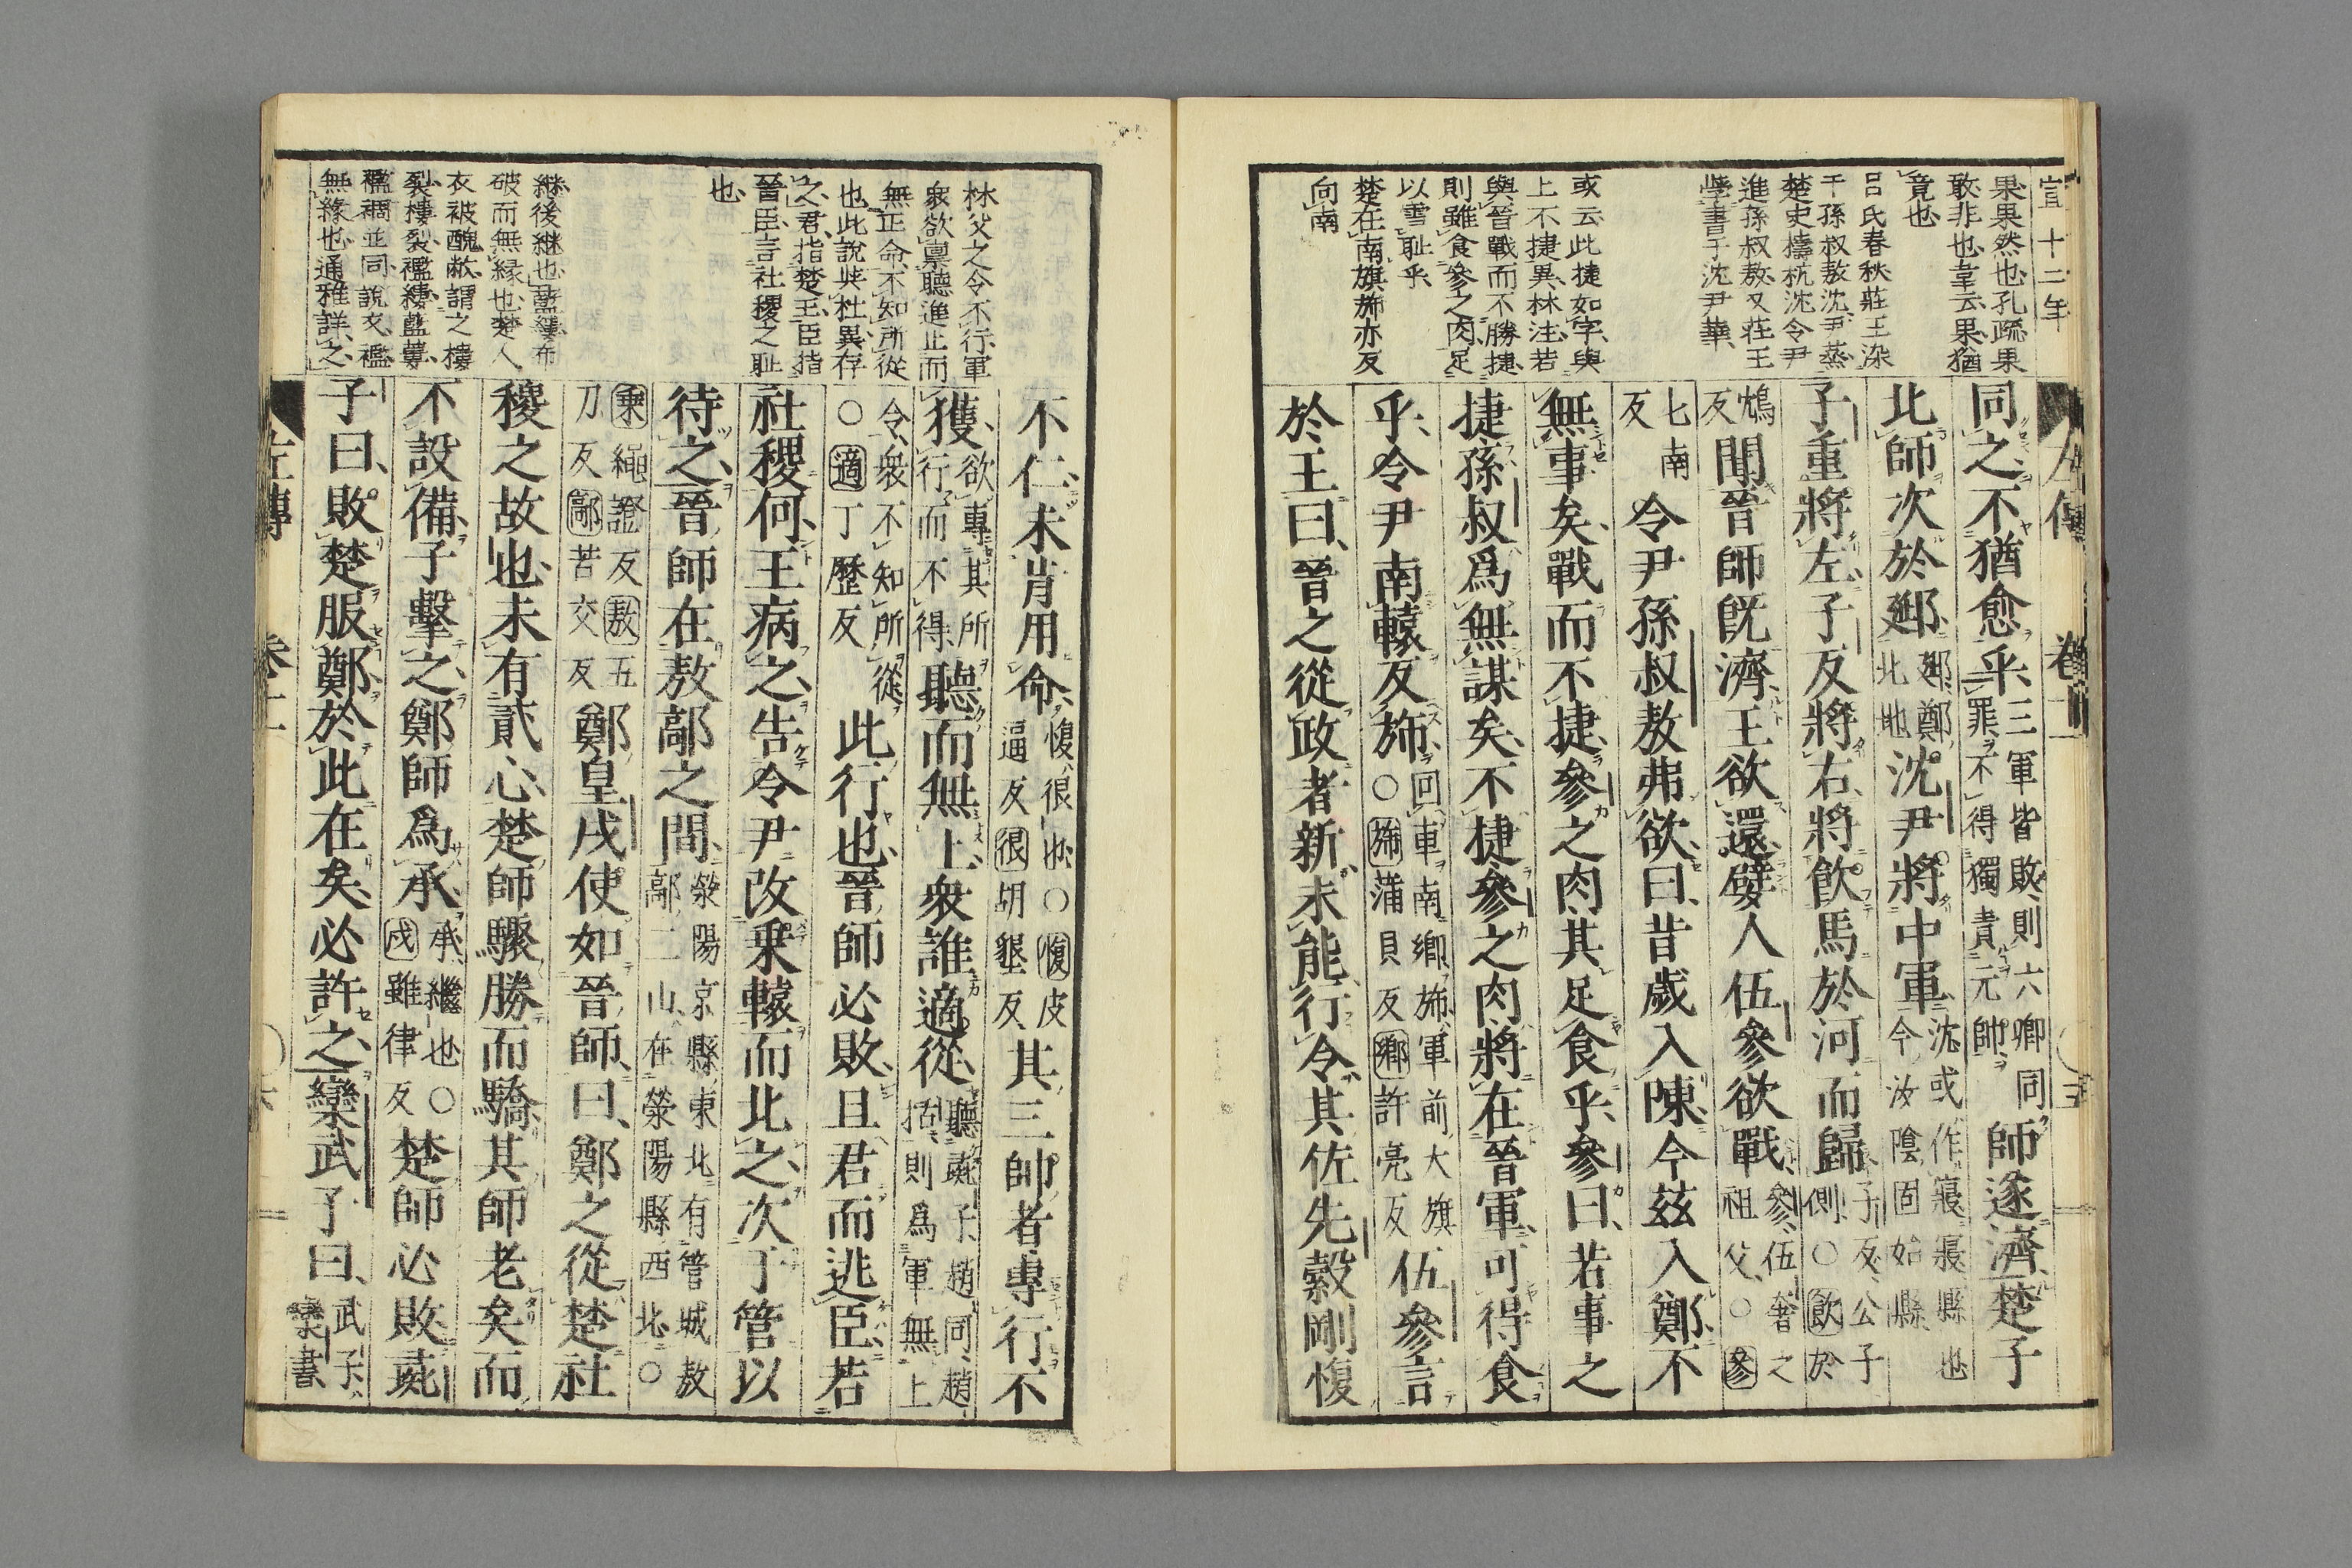 宣十二年
果果然也孔疏果
敢非也韋云果猶
竟也
呂氏春秋莊王染
于孫叔敖沈尹蒸
楚史檮杌沈令尹
進孫叔敖又莊王
學書于沈尹華
或云此捷如字與
上不捷異林注若
與晉戰而不勝捷
則雖食參之肉足
以雪耻乎
楚在南旗旆亦反
向南
同之不猶愈乎三軍皆敗則六卿同罪不得獨責元帥師遂濟楚子
北師次於郔郔鄭北地沈尹將中軍沈或作寢寢縣也今汝陰固始縣
子重將左子反將右將飲馬於河而歸子反公子側○飲於
鴆反聞晉師旣濟王欲還嬖人伍參欲戰參伍奢之祖父○參
七南反令尹孫叔敖弗欲曰昔歲入陳今茲入鄭不
無事矣戰而不捷參之肉其足食乎參曰若事之
捷孫叔爲無謀矣不捷參之肉將在晉軍可得食
乎令尹南轅反旆回車南鄉旆軍前大旗○旆蒲貝反鄉許亮反伍參言
於王曰晉之從政者新未能行令其佐先縠剛愎
左傳 卷十一
林父之令不行軍
衆欲稟聽進止而
無正命不知所從
也此說與杜異存
之君指楚王臣指
晉臣言社稷之耻
也
継後継也藍蔞布
破而無緣也楚人
衣被醜敝謂之褸
裂褸裂襤褸藍蔞
襤裯並同說文襤
無緣也通雅詳之
不仁未肯用命愎很也○愎皮逼反很胡墾反其三帥者專行不
獲欲專其所行而不得聽而無上衆誰適從聽彘子趙同趙括則爲軍無上
令衆不知所從○適丁歷反此行也晉師必敗且君而逃臣若
社稷何王病之告令尹改乘轅而北之次于管以
待之晉師在敖鄗之間滎陽京縣東北有管城敖鄗二山在滎陽縣西北○
乘繩證反敖五刀反鄗苦交反鄭皇戌使如晉師曰鄭之從楚社
稷之故也未有貳心楚師驟勝而驕其師老矣而
不設備子擊之鄭師爲承承繼也○戌雖律反楚師必敗彘
子曰敗楚服鄭於此在矣必許之欒武子曰武子欒書
左傳 卷十一